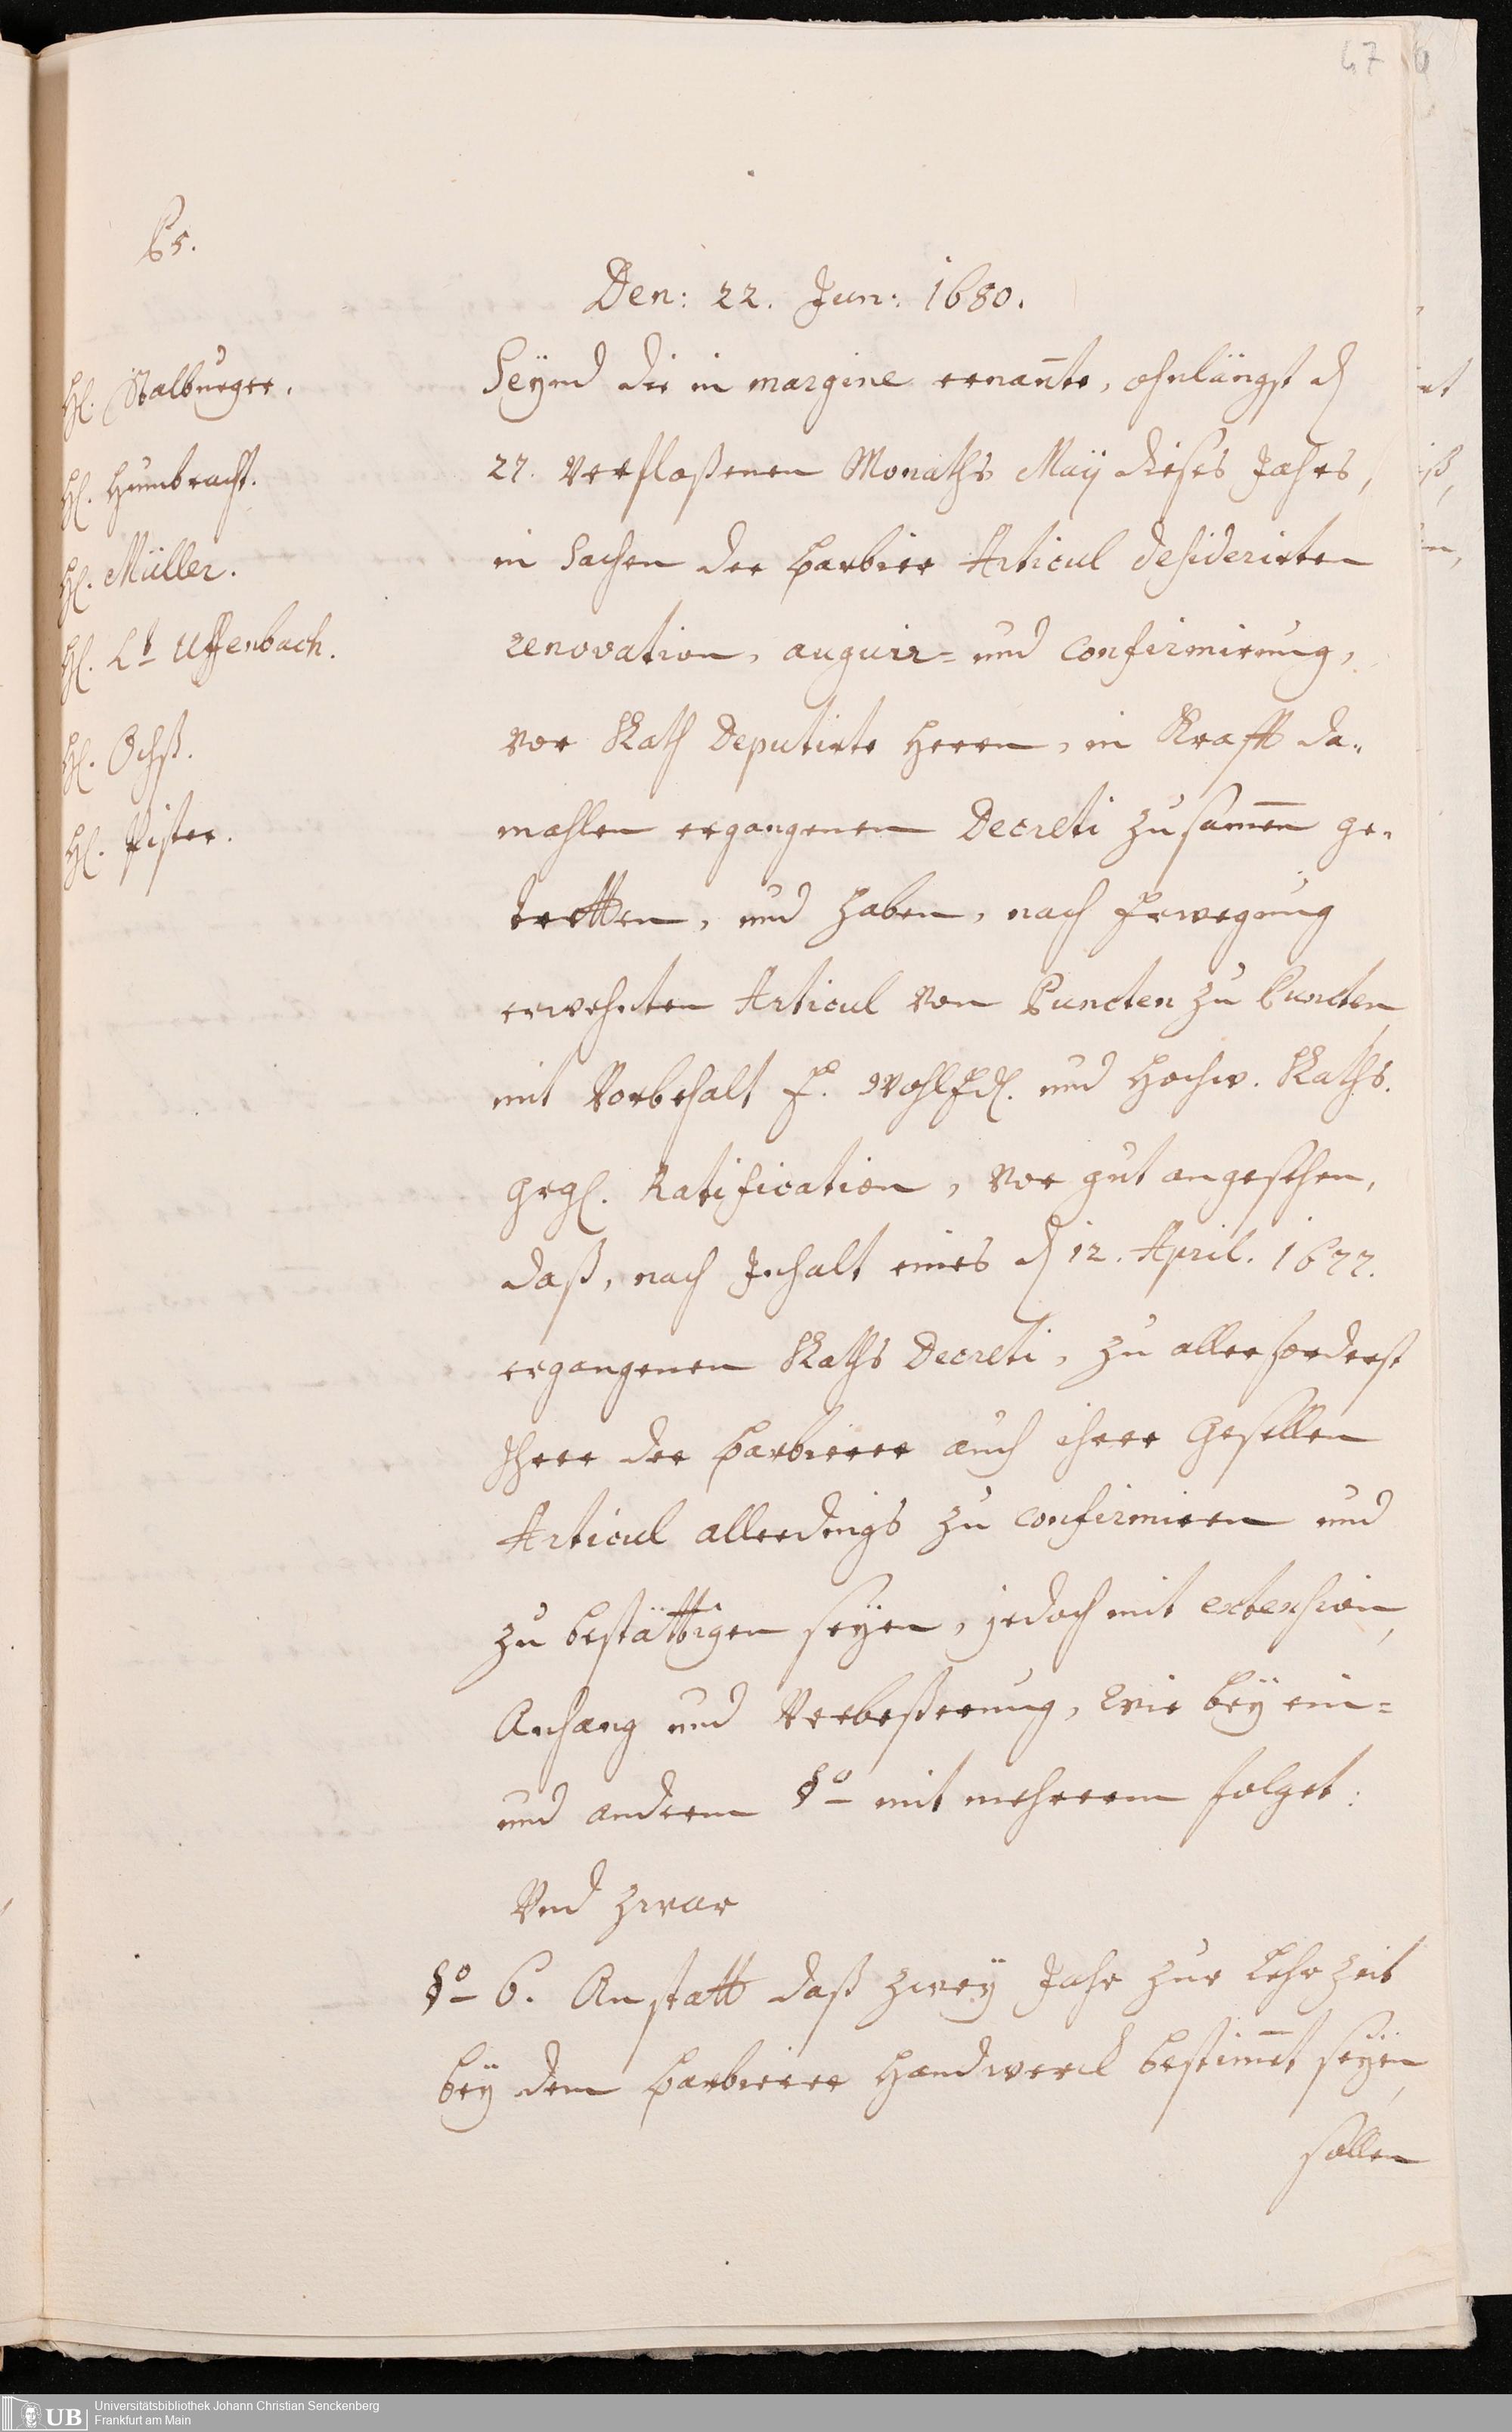 67
Ps.
Den: 22. Jun: 1680.
Hl. Stalburger.
Hl. Humbracht.
Hl. Müller.
Hl. Lt Uffenbach.
Hl. Ochß.
Hl. Pister.
Seynd die in margine ernante, ohnlängst d
27. verfloßenen Monaths Maÿ dieses Jahrs,
in Sachen der Barbier Articul desiderirten
renovation, augir= und confirmirung,
vor Rath Deputirte Herrn, in Krafft da-
mahlen ergangenem Decreti zusamen ge-
tretten, und haben, nach Erwegung
erwehnten Articul von Puncten zu Puncten
mit Vorbehalt E. WohlEdl. und Hochw. Raths.
Grgl. Ratification, vor gut angesehen,
daß, nach Inhalt eines d 12. April. 1677.
ergangenen Raths Decreti, zu allerforderst
Ihrer der Barbierer auch ihrer Gesellen
Articul allerdings zu confirmiren und
zu bestättigen seÿen, jedoch mit extension,
Anhang und Verbeßerung, wie beÿ ein=
und anderm §o mit mehrerm folget:
Vnd zwar
§o 6. Anstatt daß zweÿ Jahr zur Lehrzeit
beÿ dem Barbierer Handwerck bestimet seÿen,
sollen
UB Universitätsbibliothek Johann Christian Senckenberg
Frankfurt am Main